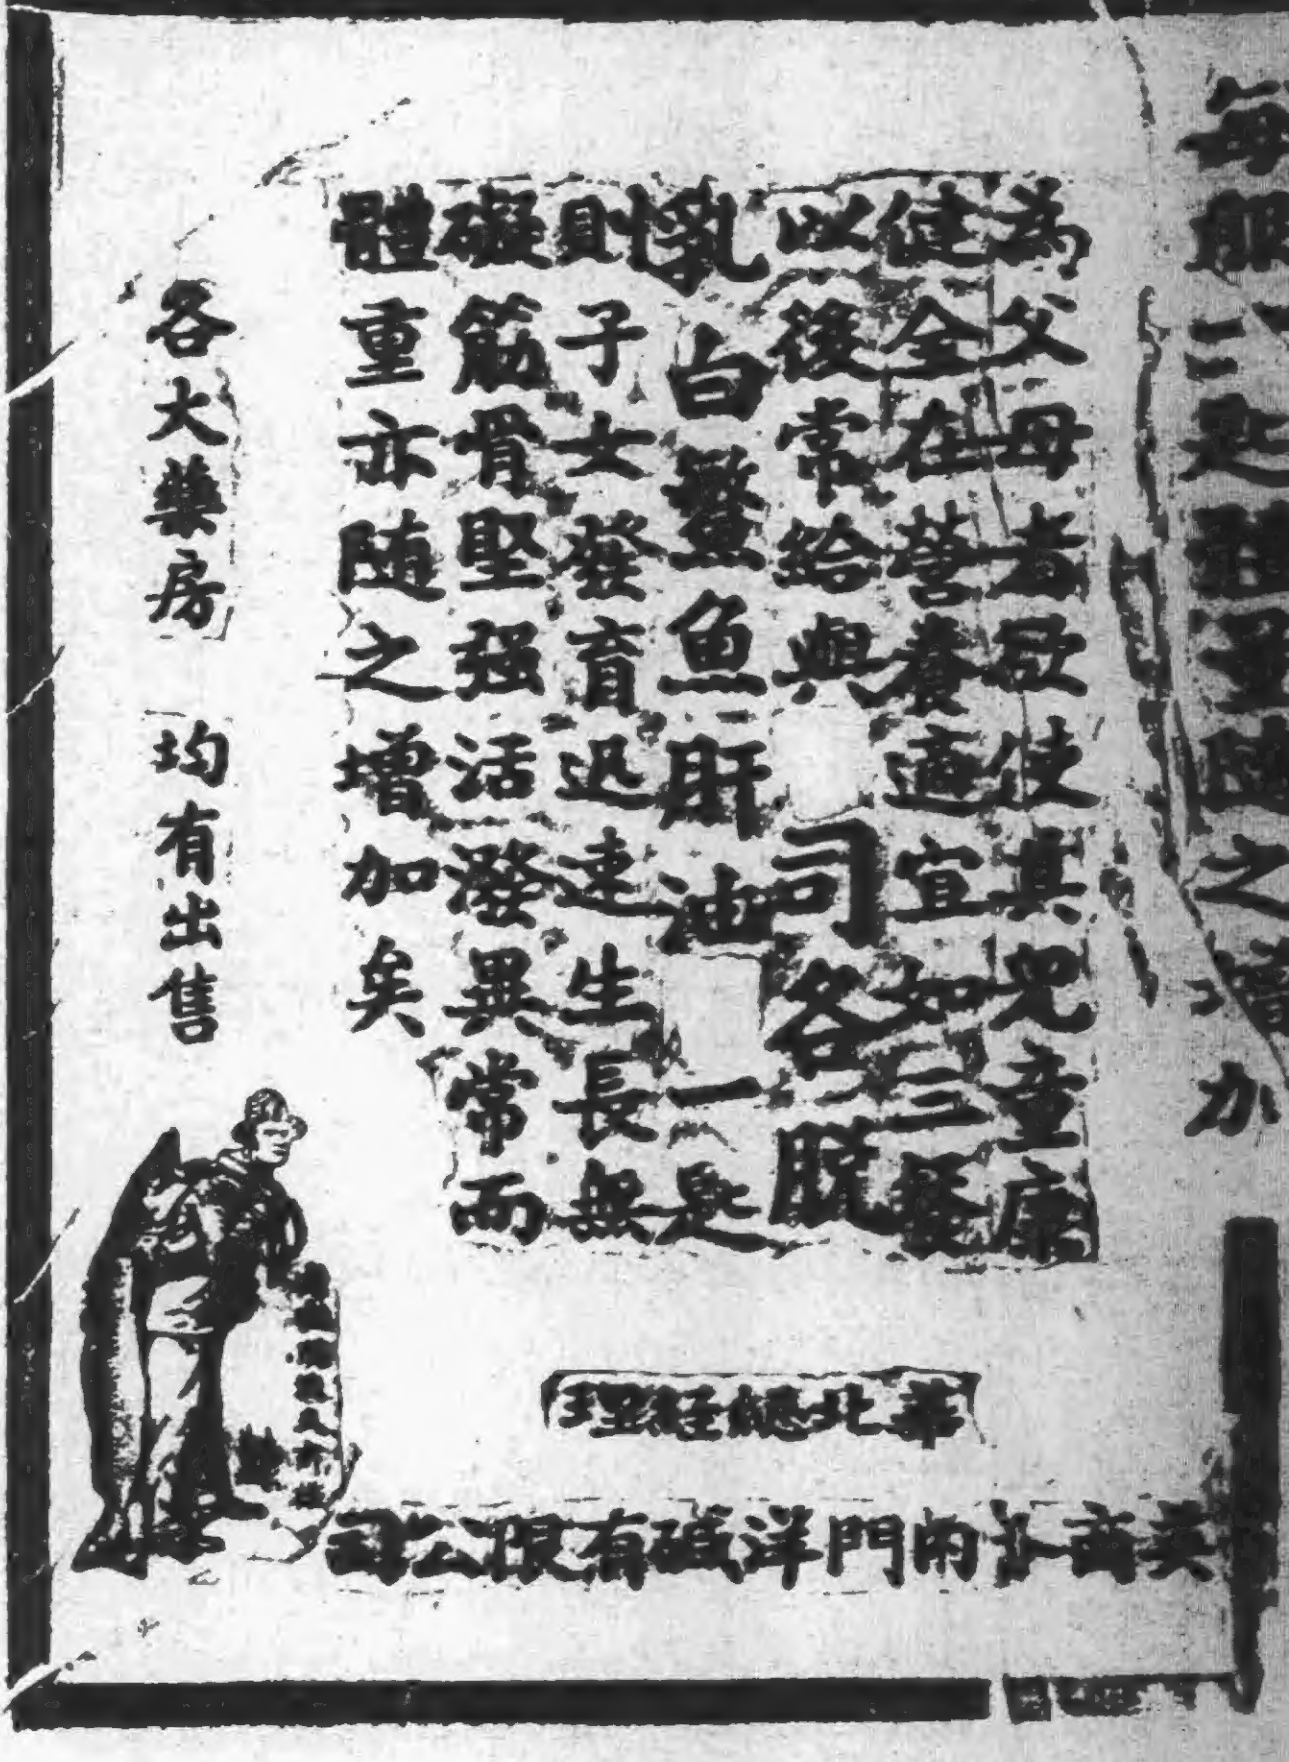 每服一匙體重隨之增加
為父母者欲使其兒童康
健全在營養適宜如三餐
以後常給與司各脫
乳白鰵魚肝油一匙
則子女發育迅速生長無
礙筋骨堅强活潑異常而
體重亦随之增加矣
各大藥房 均有出售
華北總經理
英商卜內門洋碱有限公司